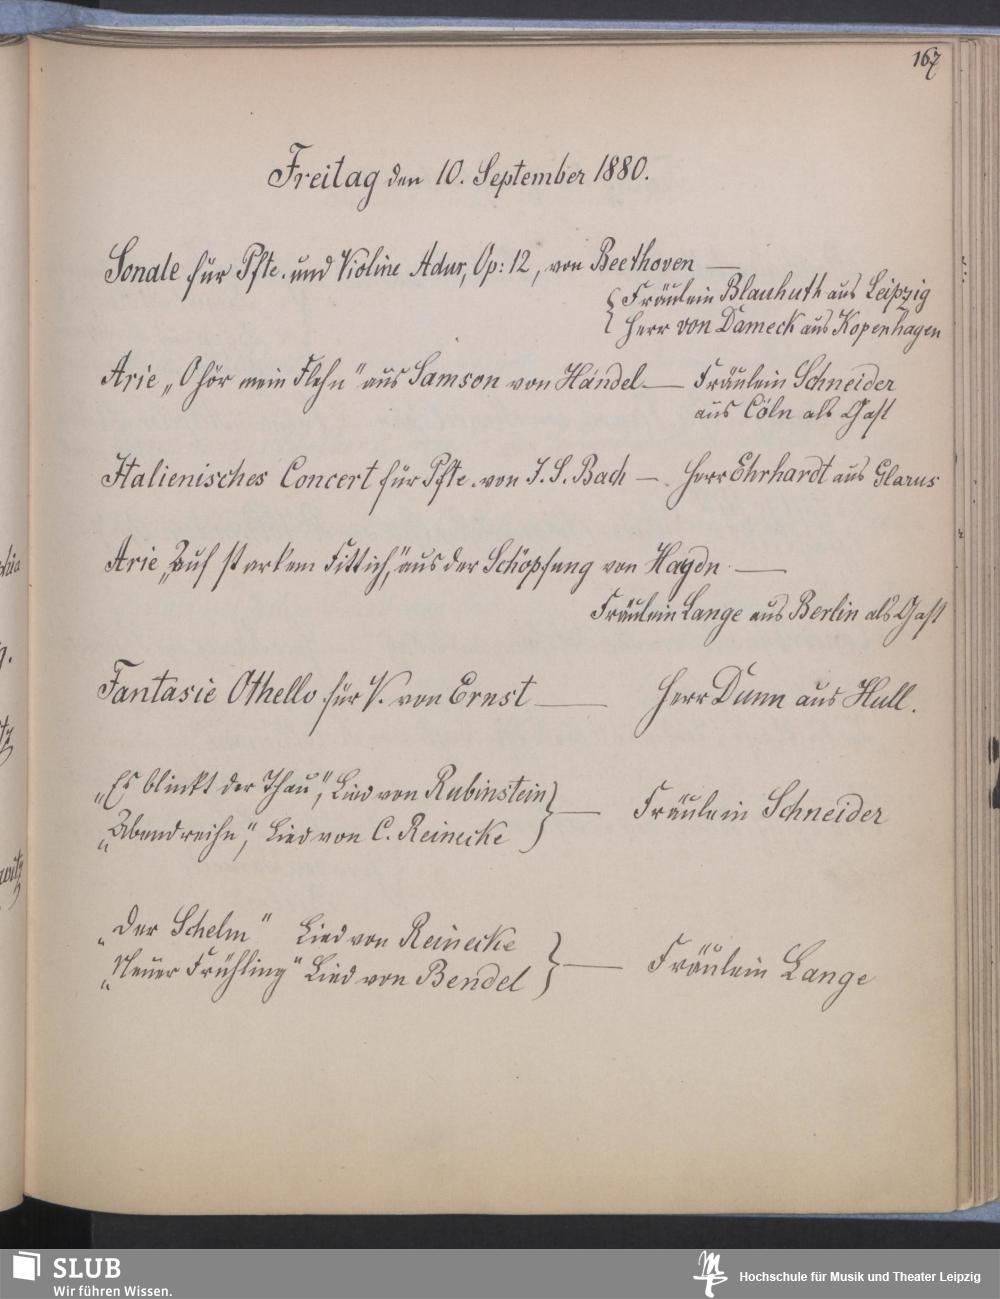 167
Freitag den 10. September 1880.
Sonate für Pfte. und Violine Adur, Op: 12, von Beethoven —
Fräulein Blauhuth aus Leipzig
Herr von Dameck aus Kopenhagen
Arie „O hör mein Flehn" aus Samson von Händel — Fräulein Schneider
aus Cöln als Gast
Italienisches Concert für Pfte. von J. S. Bach — Herr Ehrhardt aus Glarus
Arie „Auf starkem Fittich," aus der Schöpfung von Haydn —
Fräulein Lange aus Berlin als Gast
Fantasie Othello für V. von Ernst — Herr Dunn aus Hull.
„Es blinkt der Thau", Lied von Rubinstein
„Abendreihn", Lied von C. Reinecke } — Fräulein Schneider
„Der Schelm" Lied von Reinecke
„Neuer Frühling" Lied von Bendel } — Fräulein Lange
SLUB
Wir führen Wissen.
Hochschule für Musik und Theater Leipzig